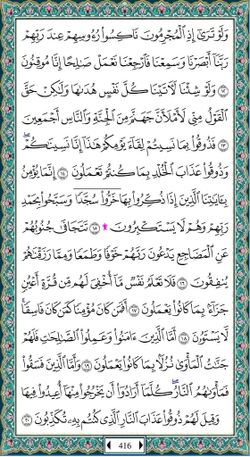 وَلَوْ تَرَىٰٓ إِذِ ٱلْمُجْرِمُونَ نَاكِسُوا۟ رُءُوسِهِمْ عِندَ رَبِّهِمْ
رَبَّنَآ أَبْصَرْنَا وَسَمِعْنَا فَٱرْجِعْنَا نَعْمَلْ صَٰلِحًا إِنَّا مُوقِنُونَ
١٢ وَلَوْ شِئْنَا لَءَاتَيْنَا كُلَّ نَفْسٍ هُدَىٰهَا وَلَٰكِنْ حَقَّ
ٱلْقَوْلُ مِنِّى لَأَمْلَأَنَّ جَهَنَّمَ مِنَ ٱلْجِنَّةِ وَٱلنَّاسِ أَجْمَعِينَ
١٣ فَذُوقُوا۟ بِمَا نَسِيتُمْ لِقَآءَ يَوْمِكُمْ هَٰذَآ إِنَّا نَسِينَٰكُمْ
وَذُوقُوا۟ عَذَابَ ٱلْخُلْدِ بِمَا كُنتُمْ تَعْمَلُونَ ١٤ إِنَّمَا يُؤْمِنُ
بِـَٔايَٰتِنَا ٱلَّذِينَ إِذَا ذُكِّرُوا۟ بِهَا خَرُّوا۟ سُجَّدًا وَسَبَّحُوا۟ بِحَمْدِ
رَبِّهِمْ وَهُمْ لَا يَسْتَكْبِرُونَ ۩ ١٥ تَتَجَافَىٰ جُنُوبُهُمْ
عَنِ ٱلْمَضَاجِعِ يَدْعُونَ رَبَّهُمْ خَوْفًا وَطَمَعًا وَمِمَّا رَزَقْنَٰهُمْ
يُنفِقُونَ ١٦ فَلَا تَعْلَمُ نَفْسٌ مَّآ أُخْفِىَ لَهُم مِّن قُرَّةِ أَعْيُنٍ
جَزَآءًۢ بِمَا كَانُوا۟ يَعْمَلُونَ ١٧ أَفَمَن كَانَ مُؤْمِنًا كَمَن كَانَ فَاسِقًا ۚ
لَّا يَسْتَوُۥنَ ١٨ أَمَّا ٱلَّذِينَ ءَامَنُوا۟ وَعَمِلُوا۟ ٱلصَّٰلِحَٰتِ فَلَهُمْ
جَنَّٰتُ ٱلْمَأْوَىٰ نُزُلًۢا بِمَا كَانُوا۟ يَعْمَلُونَ ١٩ وَأَمَّا ٱلَّذِينَ فَسَقُوا۟
فَمَأْوَىٰهُمُ ٱلنَّارُ ۖ كُلَّمَآ أَرَادُوٓا۟ أَن يَخْرُجُوا۟ مِنْهَآ أُعِيدُوا۟ فِيهَا
وَقِيلَ لَهُمْ ذُوقُوا۟ عَذَابَ ٱلنَّارِ ٱلَّذِى كُنتُم بِهِۦ تُكَذِّبُونَ ٢٠
416